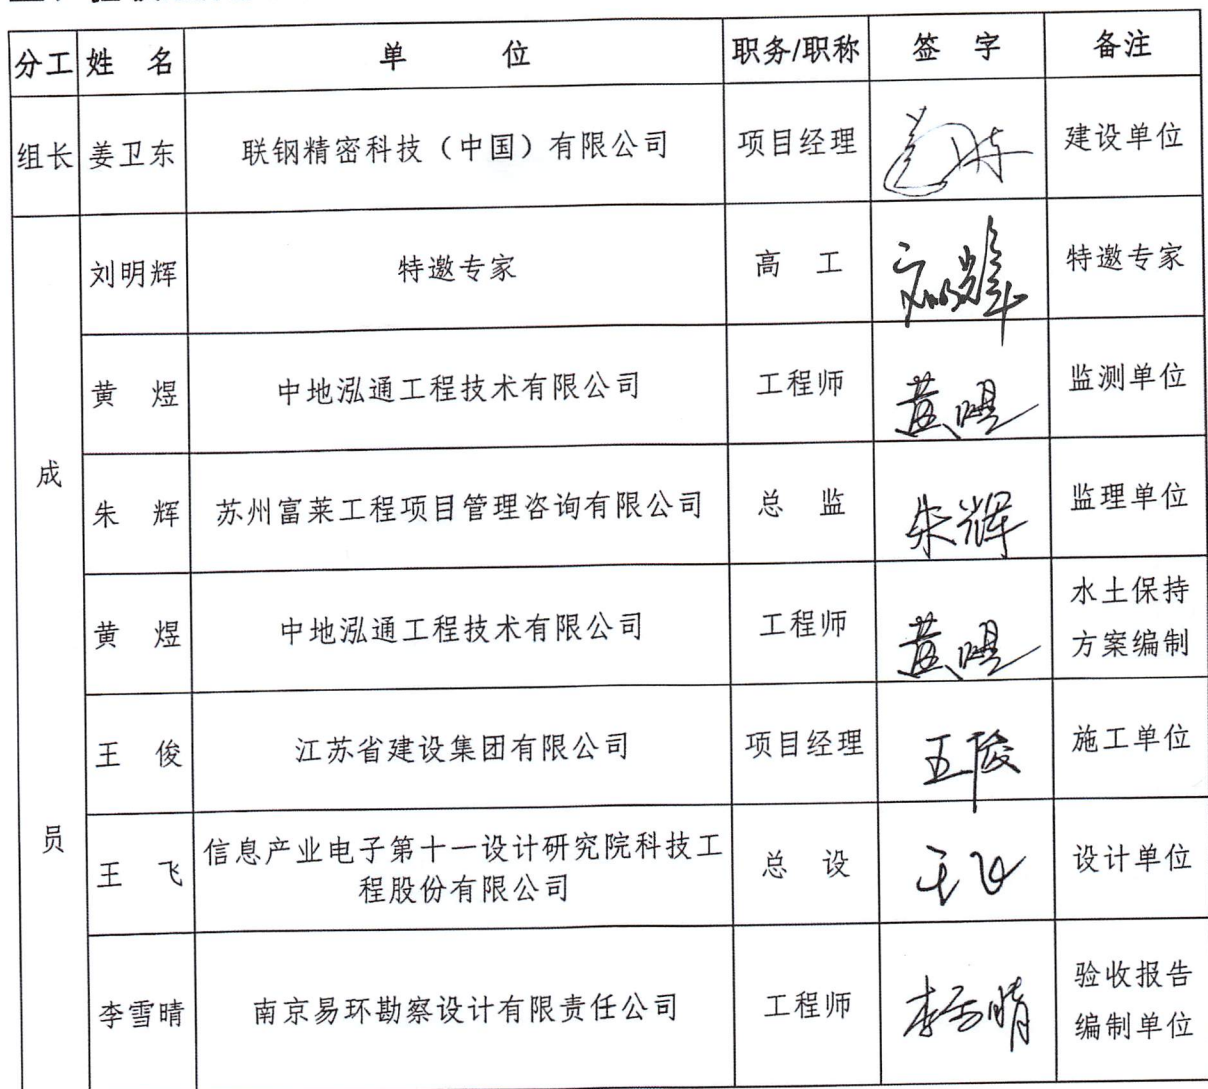 分工 姓 名 单 位 职务/职称 签 字 备注
组长 姜卫东 联钢精密科技（中国）有限公司 项目经理 建设单位
成员
刘明辉 特邀专家 高 工 刘明辉 特邀专家
黄 煜 中地泓通工程技术有限公司 工程师 黄煜 监测单位
朱 辉 苏州富莱工程项目管理咨询有限公司 总 监 朱辉 监理单位
黄 煜 中地泓通工程技术有限公司 工程师 黄煜 水土保持
方案编制
王 俊 江苏省建设集团有限公司 项目经理 王俊 施工单位
王 飞 信息产业电子第十一设计研究院科技工
程股份有限公司 总 设 王飞 设计单位
李雪晴 南京易环勘察设计有限责任公司 工程师 李雪晴 验收报告
编制单位